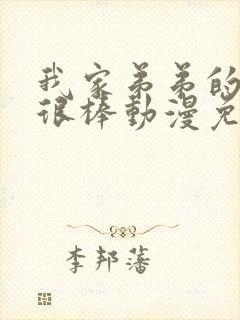 我家弟弟的
很棒動漫免
李邦藩